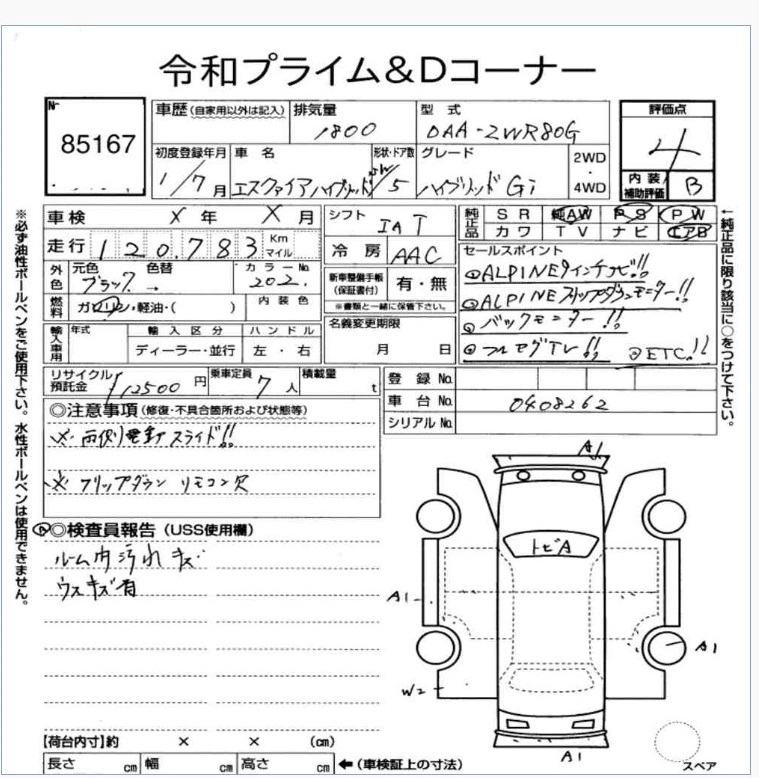 令和プライム&Dコーナー
No.
85167
車歴(自家用以外は記入)
排気量
1800
型式
DAA-ZWR80G
評価点
4
初度登録年月
1/7月
車名
エスクァイアハイブリッド
形状・ドア数
5
グレード
ハイブリッドGi
2WD
・
4WD
内装
補助評価
B
車検 X年 X月
シフト
IAT
純正品
SR 純AW PS PW
カワ TV ナビ エアB
走行 120,783 Km マイル
冷房
AAC
セールスポイント
①ALPINE9インチナビ!!
②ALPINEフリップダウンモニター!!
③バックモニター!!
④フルセグTV!! ⑤ETC!!
外色
元色 色替
ブラック →
カラーNo.
202
新車整備手帳
(保証書付)
有・無
※書類と一緒に保管下さい。
燃料
ガソリン・軽油・( )
内装色
輸入車用
年式
輸入区分
ディーラー・並行
ハンドル
左・右
名義変更期限
月 日
リサイクル
預託金
12500円
乗車定員
7人
積載量
t
登録No.
車台No.
0408262
シリアルNo.
◎注意事項(修復・不具合箇所および状態等)
※両側電動スライド!!
※フリップダウン リモコン欠
◎検査員報告(USS使用欄)
ルーム内汚れキズ
ウスキズ有
A1
トビA
A1
A1
W2
A1
スペア
【荷台内寸】約 × × (cm)
長さ cm 幅 cm 高さ cm ←(車検証上の寸法)
※必ず油性ボールペンをご使用下さい。水性ボールペンは使用できません。
←純正品に限り該当に○をつけて下さい。